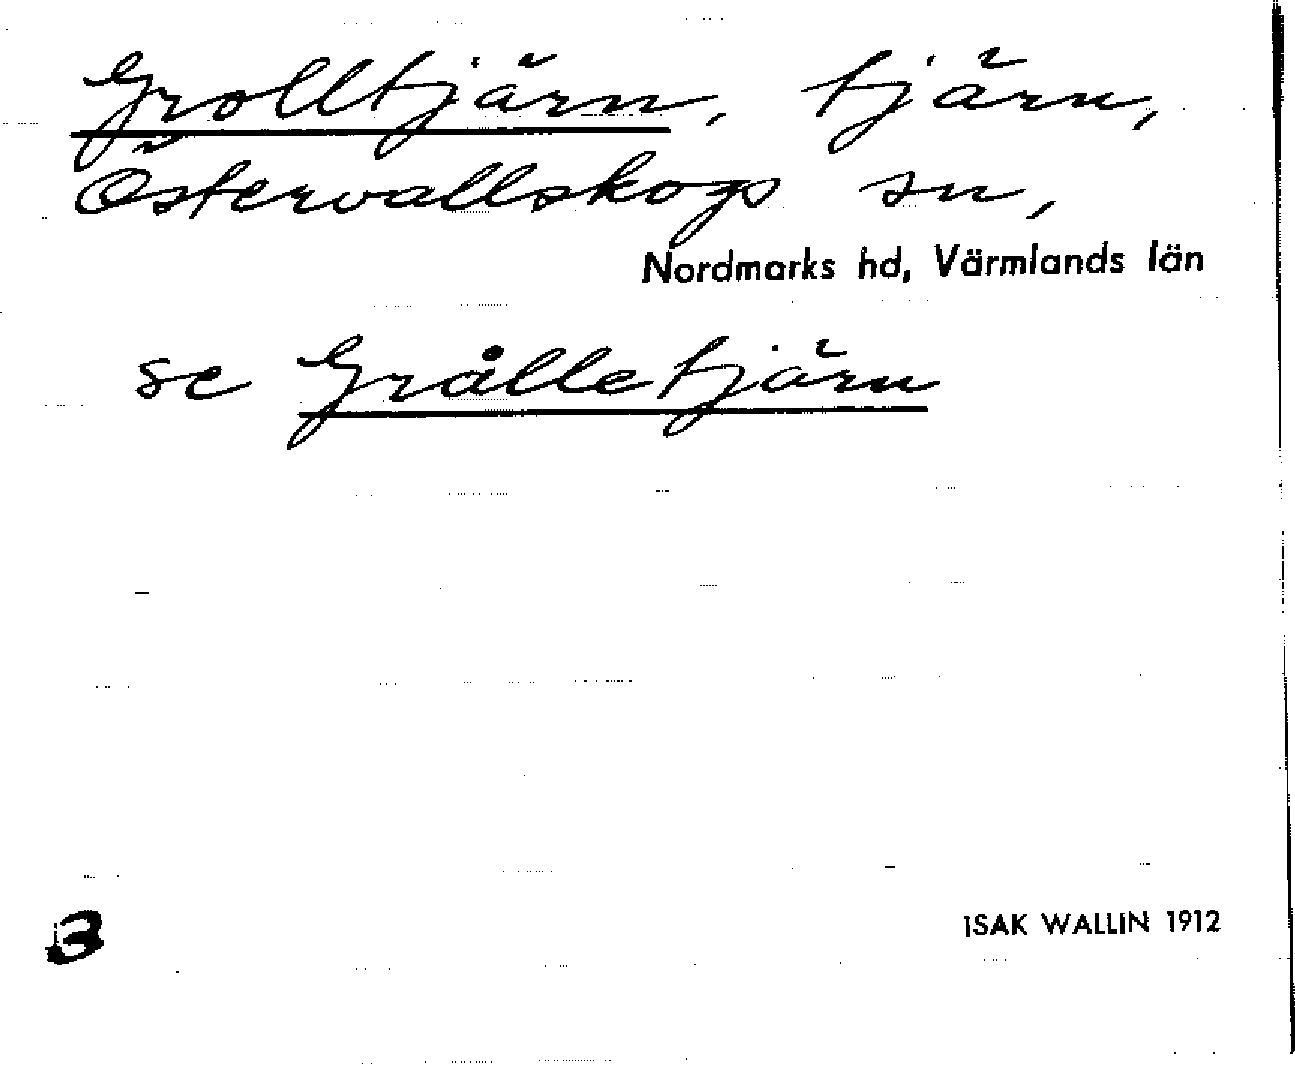 Grolltjärn, tjärn,
Östervallskogs sn,
Nordmarks hd, Värmlands län
se Grålletjärn
3
ISAK WALLIN 1912